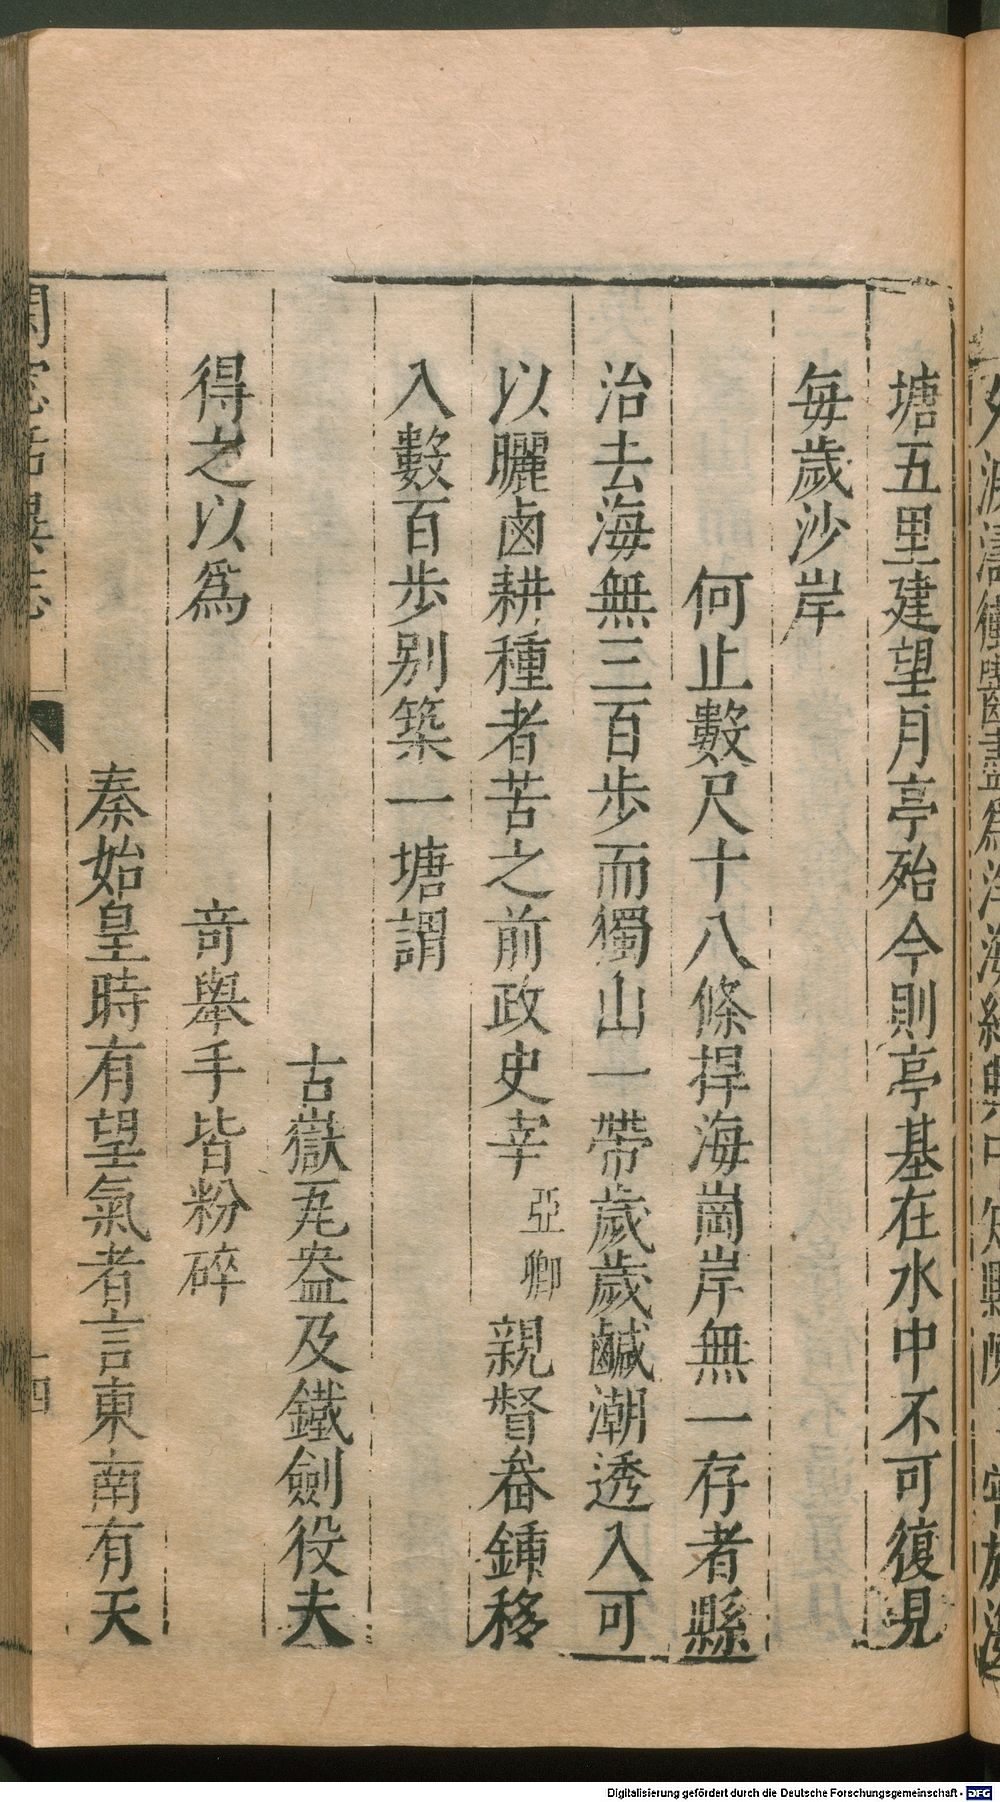 塘五里建望月亭殆今則亭基在水中不可復見
每歲沙岸
何止數尺十八條捍海崗岸無一存者縣
治去海無三百步而獨山一帶歲歲鹹潮透入可
以曬鹵耕種者苦之前政史宰亞卿親督畚鍤移
入數百步別築一塘謂
古嶽瓦盎及鐵劍役夫
得之以為
奇舉手皆粉碎
秦始皇時有望氣者言東南有天
閒窓括異志
十四
Digitalisierung gefördert durch die Deutsche Forschungsgemeinschaft - DFG